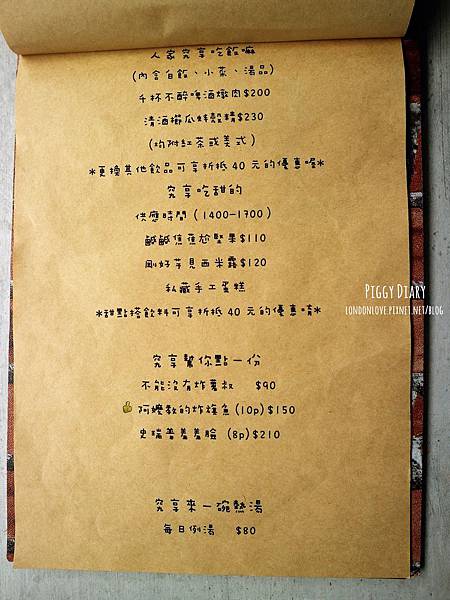 人家究享吃飯嘛
(內含白飯、小菜、湯品)
千杯不醉啤酒燉肉$200
清酒櫛瓜蚌殼精$230
(均附紅茶或美式)
*更換其他飲品可享折抵 40 元的優惠喔*
究享吃甜的
供應時間 (1400-1700)
鹹鹹焦蕉尬堅果$110
剛好芋見西米露$120
私藏手工蛋糕
*甜點搭飲料可享折抵 40 元的優惠唷*
究享幫你點一份
不能沒有炸薯叔 $90
阿嬤教的炸旗魚 (10p)$150
史瑞普羞羞臉 (8p)$210
究享來一碗熱湯
每日例湯 $80
PIGGY DIARY
LONDONLOVE.PIXNET.NET/BLOG